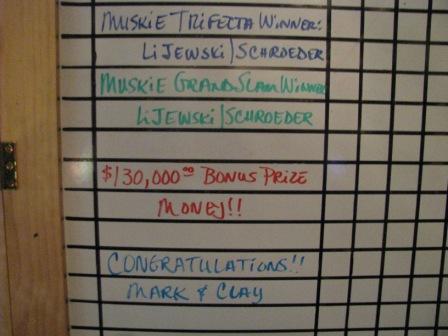 MUSKIE TRIFECTA WINNER:
LIJEWSKI/SCHROEDER
MUSKIE GRAND SLAM WINNER
LIJEWSKI/SCHROEDER
$130,000.00 BONUS PRIZE
MONEY!!
CONGRATULATIONS!!
MARK & CLAY